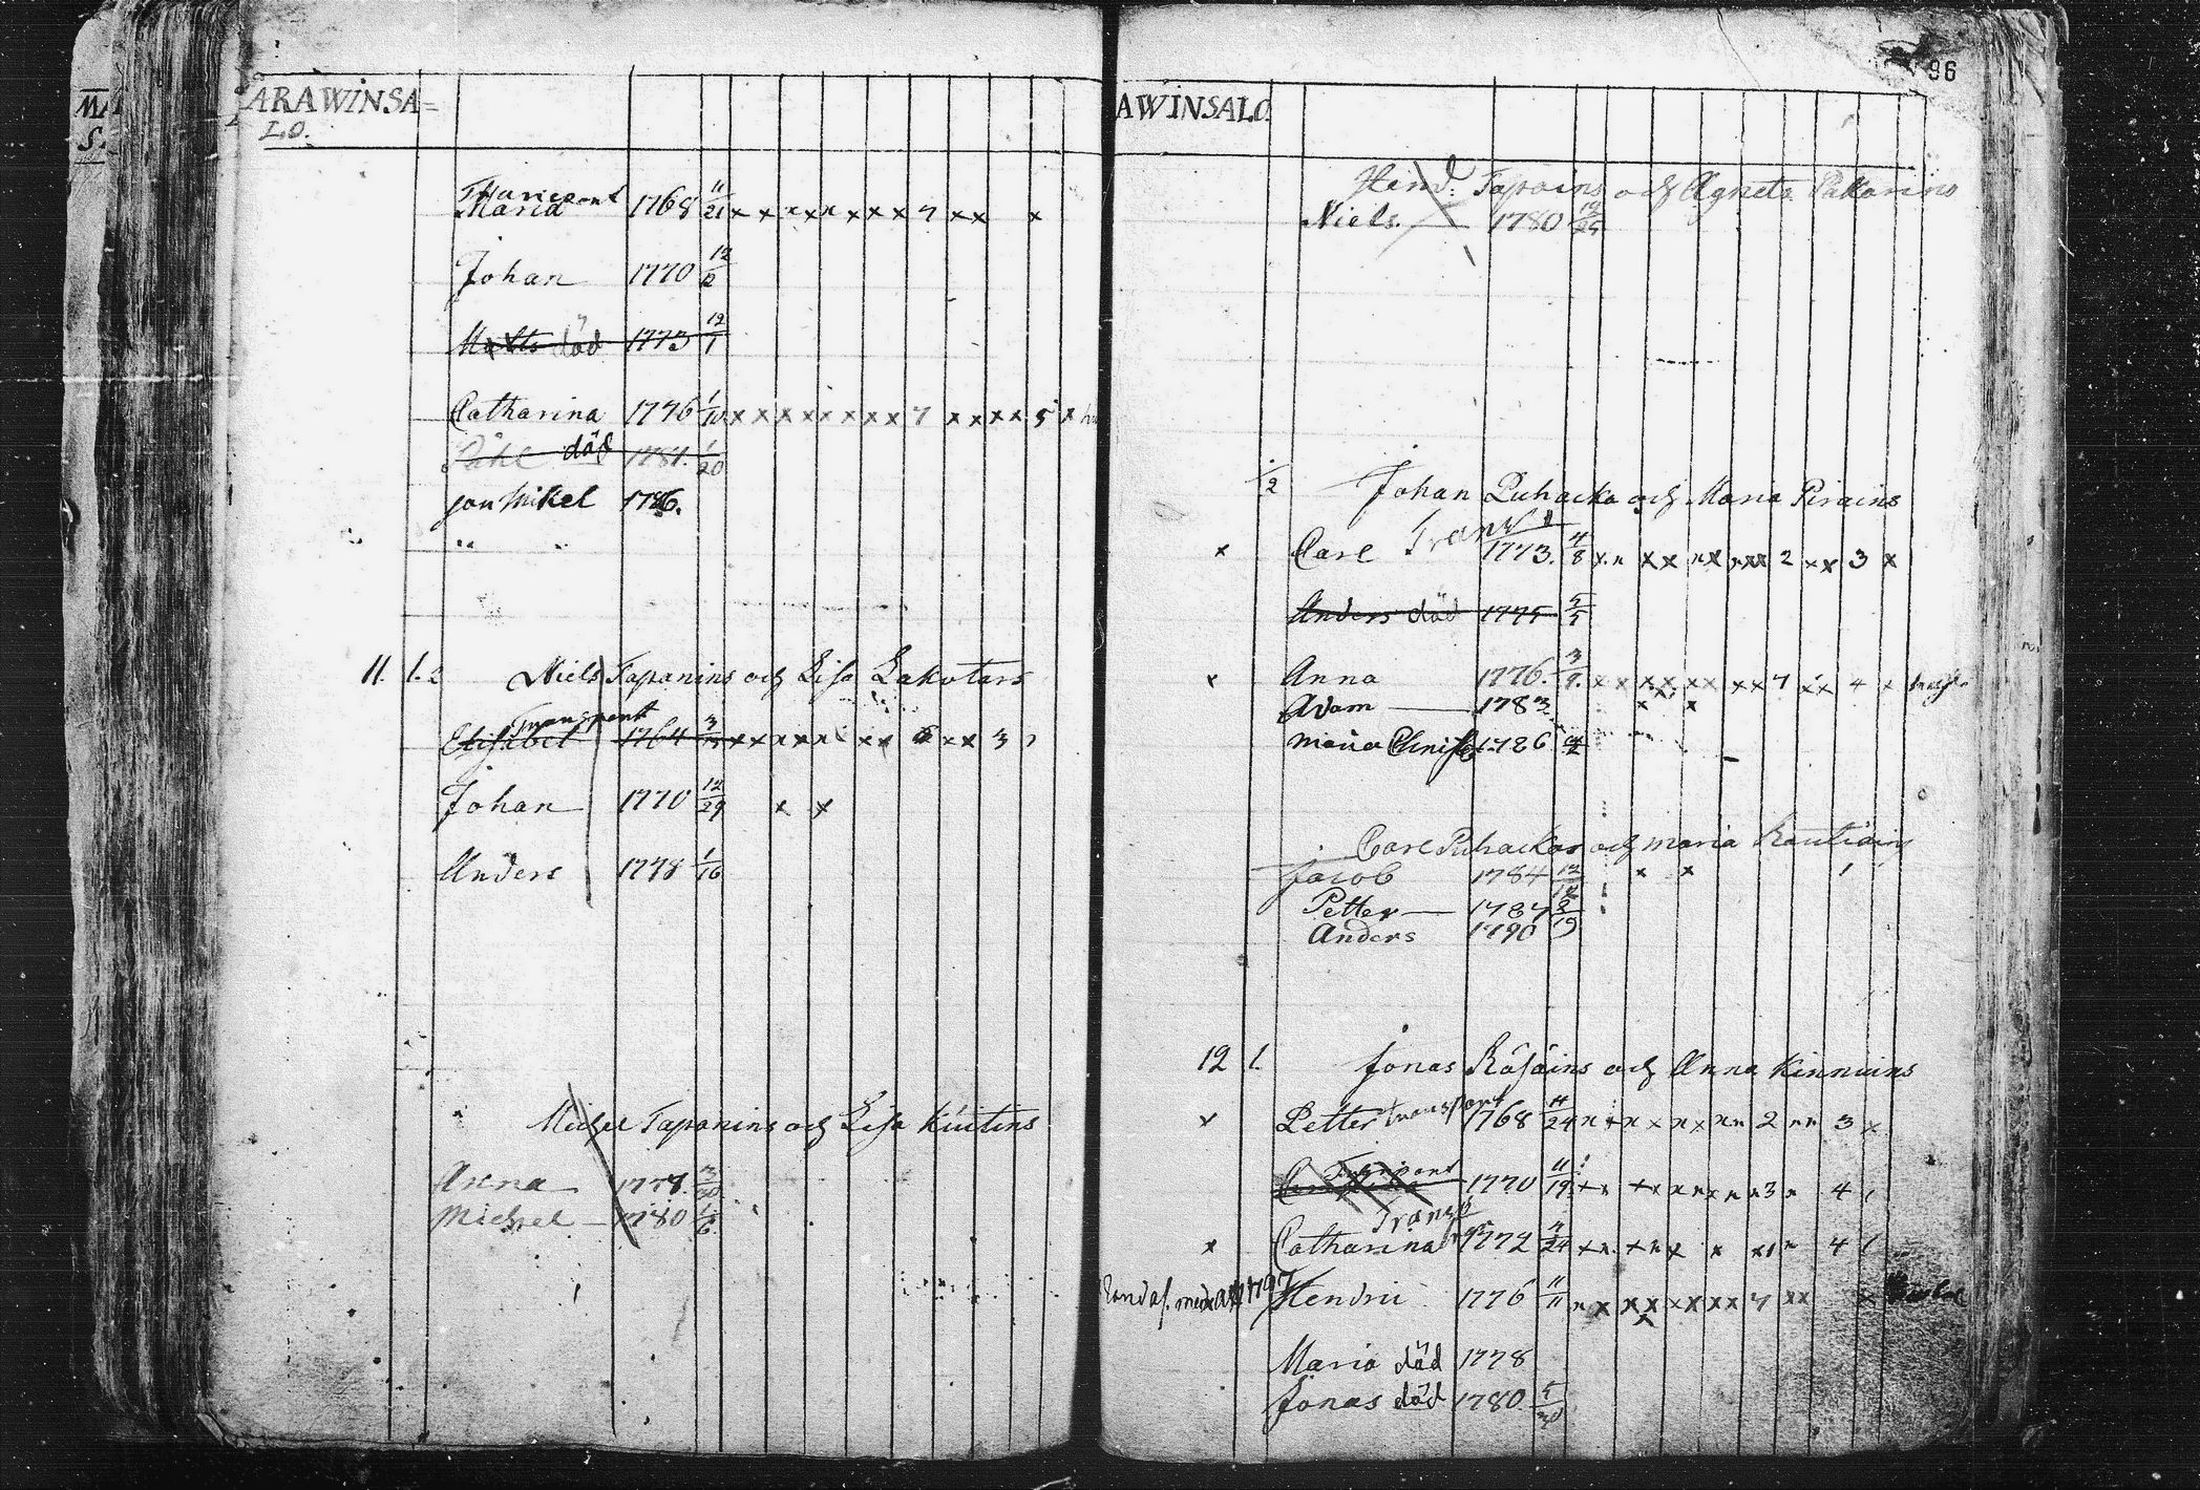 ARAWINSA=
LO.
Transport
Maria 1768 11/21 x x x x x x x 7 x x x
Johan 1770 12/2
Matts död 1773 12/1
Catharina 1776 1/10 x x x x x x x x 7 x x x x 5 x
Påhl död 1781. 1/20
Jon Mikel 1786.
11. 1.2 Niels Tapanins och Lisa Lakotars
Transport
Elisabet 1764 x x x x x x 3
Johan 1770 12/29 x x
Anders 1778 1/16
Michel Tapanins och Lisa Kiutins
Anna 1778.
Michel 1780
96
AWINSALO.
Hend: Tapains och Agneta Pakarins
Niels. 1780
1/2 Johan Puhacka och Maria Pirains
Transp
x Carl 1773. 4/8 x x x x x x x x x 2 x x 3 x
Anders död 1775 5/5
x Anna 1776. 3/9. x x x x x x x x 7 x x 4 x
Adam 1783 x x
Maria Christ 1786
Carl Puhackas och Maria Rautiain
Jacob 1784 12 x x
Petter 1787
Anders 1790
12 1. Jonas Räsäins och Anna Kinnuins
x Petter transport 1768 11/24 2 3 x
Transport
1770 11/19 3 4
Transp
x Catharina 1772 4/24 4
1797 Hendric 1776 11/11 x x x x x x x 7 x x x
Maria död 1778
Jonas död 1780. 5/30